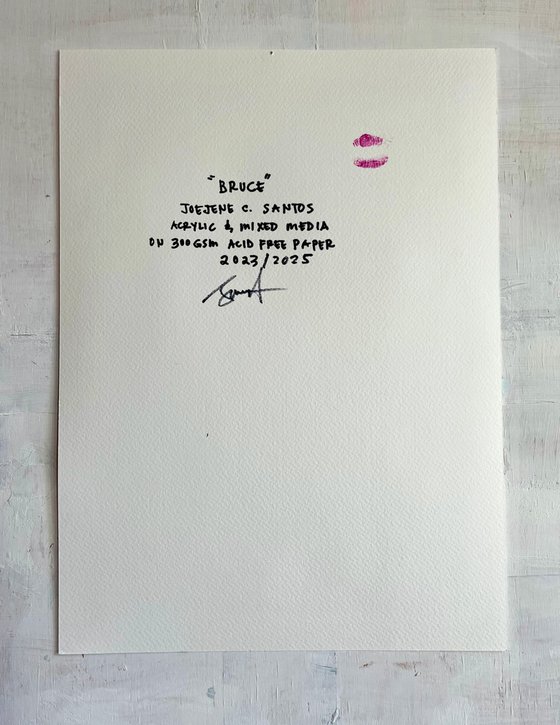 "BRUCE"
JOEJENE C. SANTOS
ACRYLIC & MIXED MEDIA
ON 300GSM ACID FREE PAPER
2023/2025